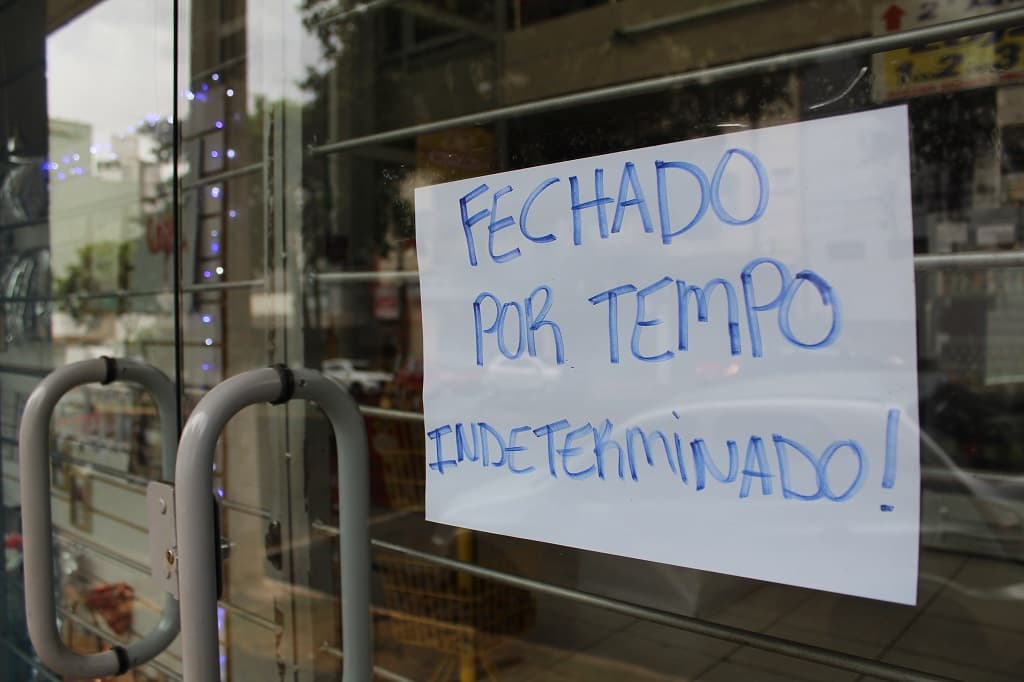 FECHADO
POR TEMPO
INDETERMINADO!
1 2 3